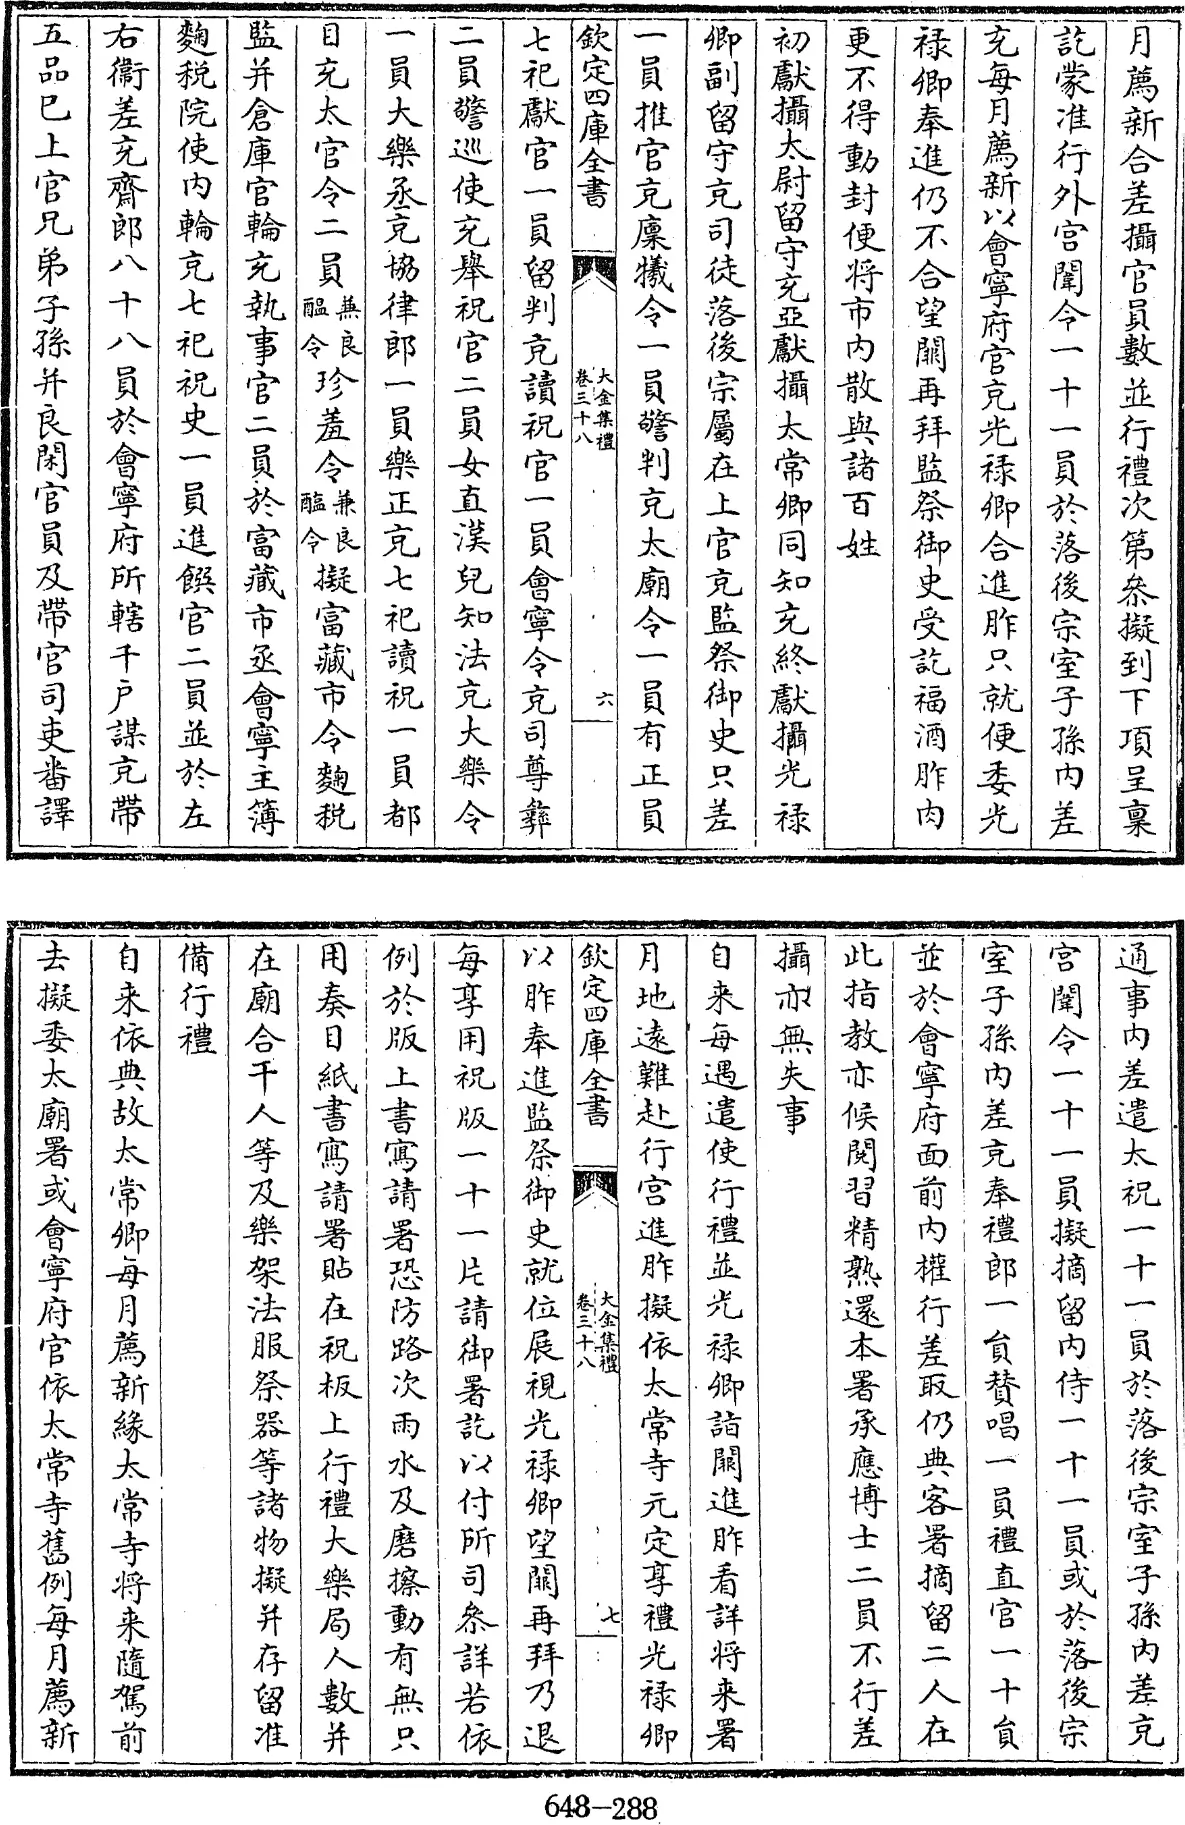 月薦新合差攝官員數並行禮次第叅擬到下項呈稟
訖蒙准行外宫闈令一十一員於落後宗室子孫内差
充每月薦新以會寧府官充光禄卿合進胙只就便委光
禄卿奉進仍不合望闕再拜監祭御史受訖福酒胙肉
更不得動封便将市内散與諸百姓
初獻攝太尉留守充亞獻攝太常卿同知充終獻攝光禄
卿副留守充司徒落後宗屬在上官充監祭御史只差
一員推官充廩犧令一員警判充太廟令一員有正員
欽定四庫全書
大金集禮
卷三十八
六
七祀獻官一員留判充讀祝官一員會寧令充司尊彝
二員警巡使充舉祝官二員女直漢兒知法充大樂令
一員大樂丞充協律郎一員樂正充七祀讀祝一員都
目充太官令二員兼良醖令珍羞令兼良醖令擬富藏市令麴税
監并倉庫官輪充執事官二員於富藏市丞會寧主簿
麴税院使内輪充七祀祝史一員進饌官二員並於左
右衞差充齋郎八十八員於會寧府所轄千户謀克帶
五品已上官兄弟子孫并良閑官員及帶官司吏畨譯
通事内差遣太祝一十一員於落後宗室子孫内差充
宫闈令一十一員擬摘留内侍一十一員或於落後宗
室子孫内差充奉禮郎一員贊唱一員禮直官一十員
並於會寧府面前内權行差取仍典客署摘留二人在
此指教亦候閱習精熟還本署承應博士二員不行差
攝亦無失事
自来每遇遣使行禮並光禄卿詣闕進胙看詳将来署
月地遠難赴行宫進胙擬依太常寺元定享禮光禄卿
欽定四庫全書
大金集禮
卷三十八
七
以胙奉進監祭御史就位展視光禄卿望闕再拜乃退
每享用祝版一十一片請御署訖以付所司叅詳若依
例於版上書寫請署恐防路次雨水及磨擦動有無只
用奏目紙書寫請署貼在祝板上行禮大樂局人數并
在廟合干人等及樂架法服祭器等諸物擬并存留准
備行禮
自来依典故太常卿每月薦新緣太常寺将来隨駕前
去擬委太廟署或會寧府官依太常寺舊例每月薦新
648-288